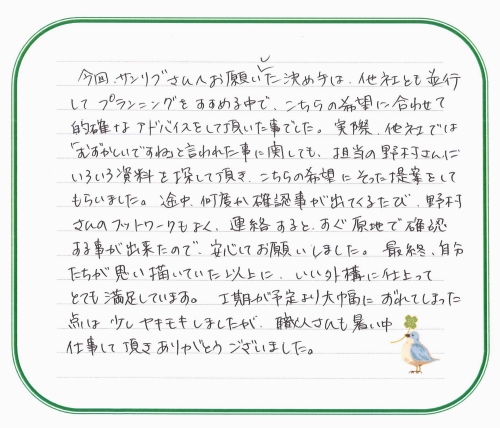 今回、サンリブさんへお願いした決め手は、他社とも並行
してプランニングをすすめる中で、こちらの希望に合わせて
的確なアドバイスをして頂いた事でした。実際、他社では
「むずかしいですね」と言われた事に関しても、担当の野村さんに
いろいろ資料を探して頂き、こちらの希望にそった提案をして
もらいました。途中、何度か確認事が出てくるたび、野村
さんのフットワークもよく、連絡すると、すぐ原地で確認
する事が出来たので、安心してお願いしました。最終、自分
たちが思い描いていた以上に、いい外構に仕上って
とても満足しています。工期が予定より大幅にずれてしまった
点は少しヤキモキしましたが、職人さんも暑い中
仕事して頂きありがとうございました。